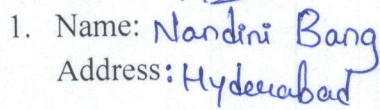 1. Name: Nandini Bang
Address: Hyderabad